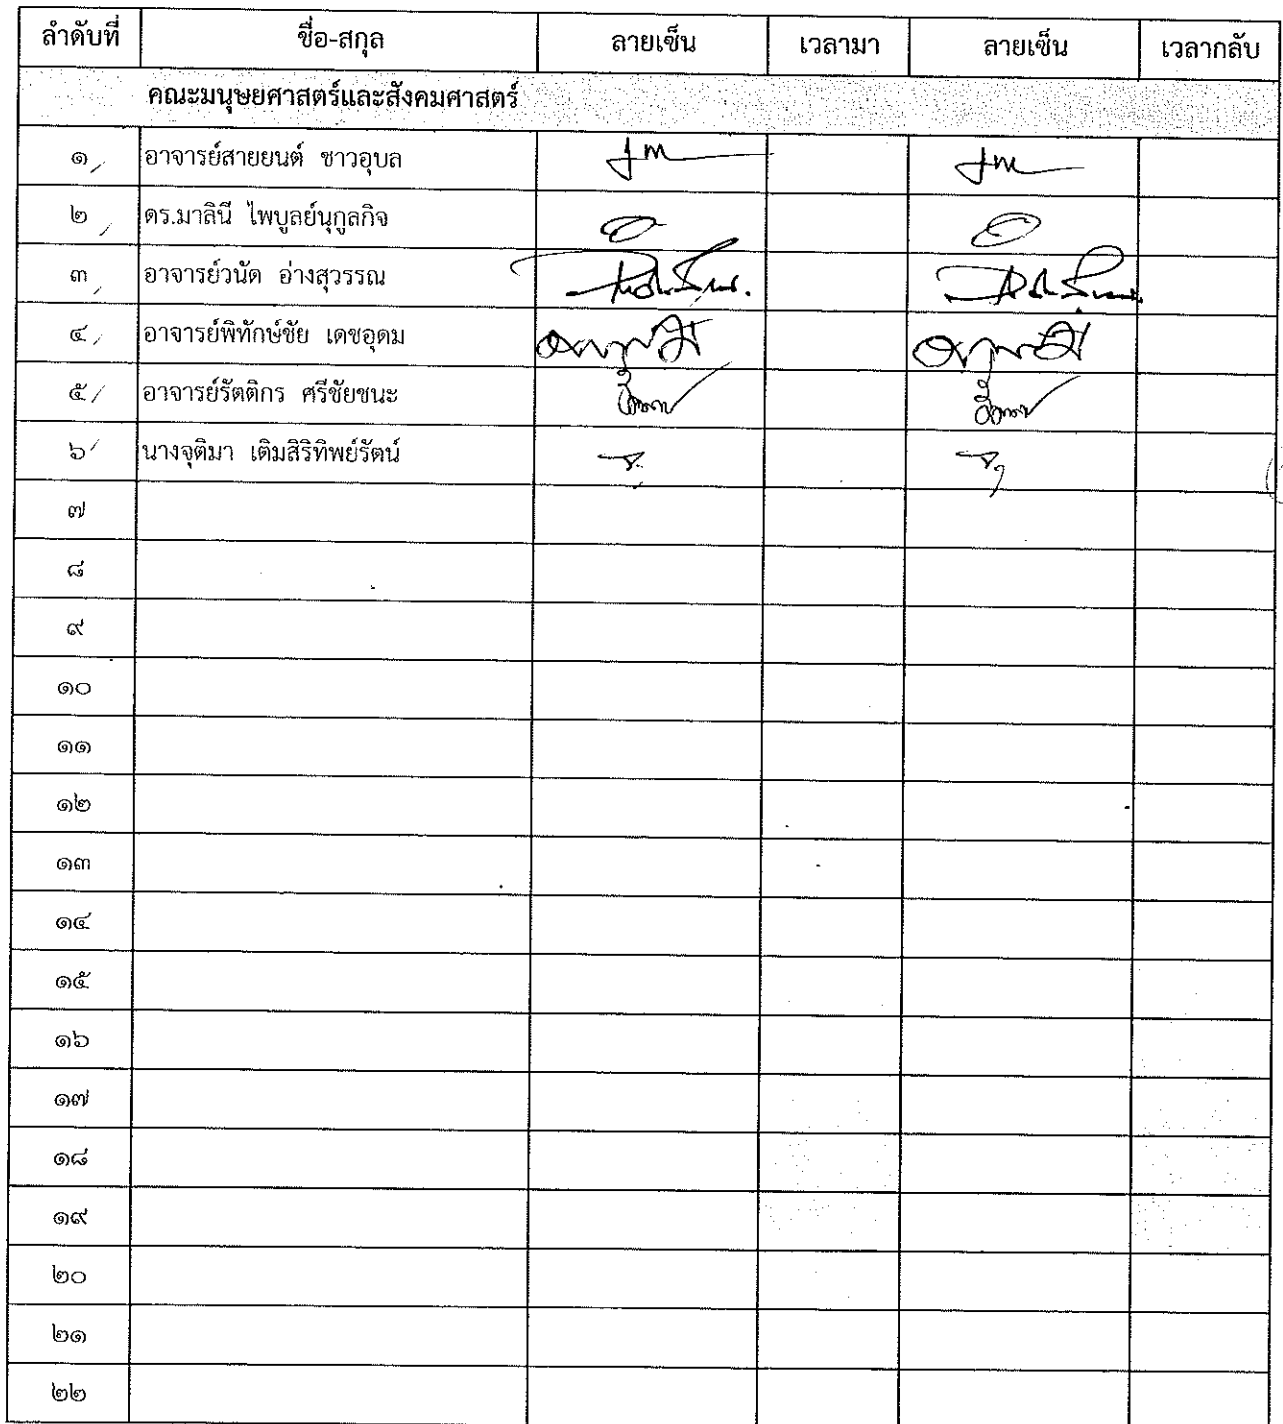 ลำดับที่ ชื่อ-สกุล ลายเซ็น เวลามา ลายเซ็น เวลากลับ
คณะมนุษยศาสตร์และสังคมศาสตร์
๑ อาจารย์สายยนต์ ชาวอุบล
๒ ดร.มาลินี ไพบูลย์นุกูลกิจ
๓ อาจารย์วนัด อ่างสุวรรณ
๔ อาจารย์พิทักษ์ชัย เดชอุดม
๕ อาจารย์รัตติกร ศรีชัยชนะ
๖ นางจุติมา เติมสิริทิพย์รัตน์
๗
๘
๙
๑๐
๑๑
๑๒
๑๓
๑๔
๑๕
๑๖
๑๗
๑๘
๑๙
๒๐
๒๑
๒๒